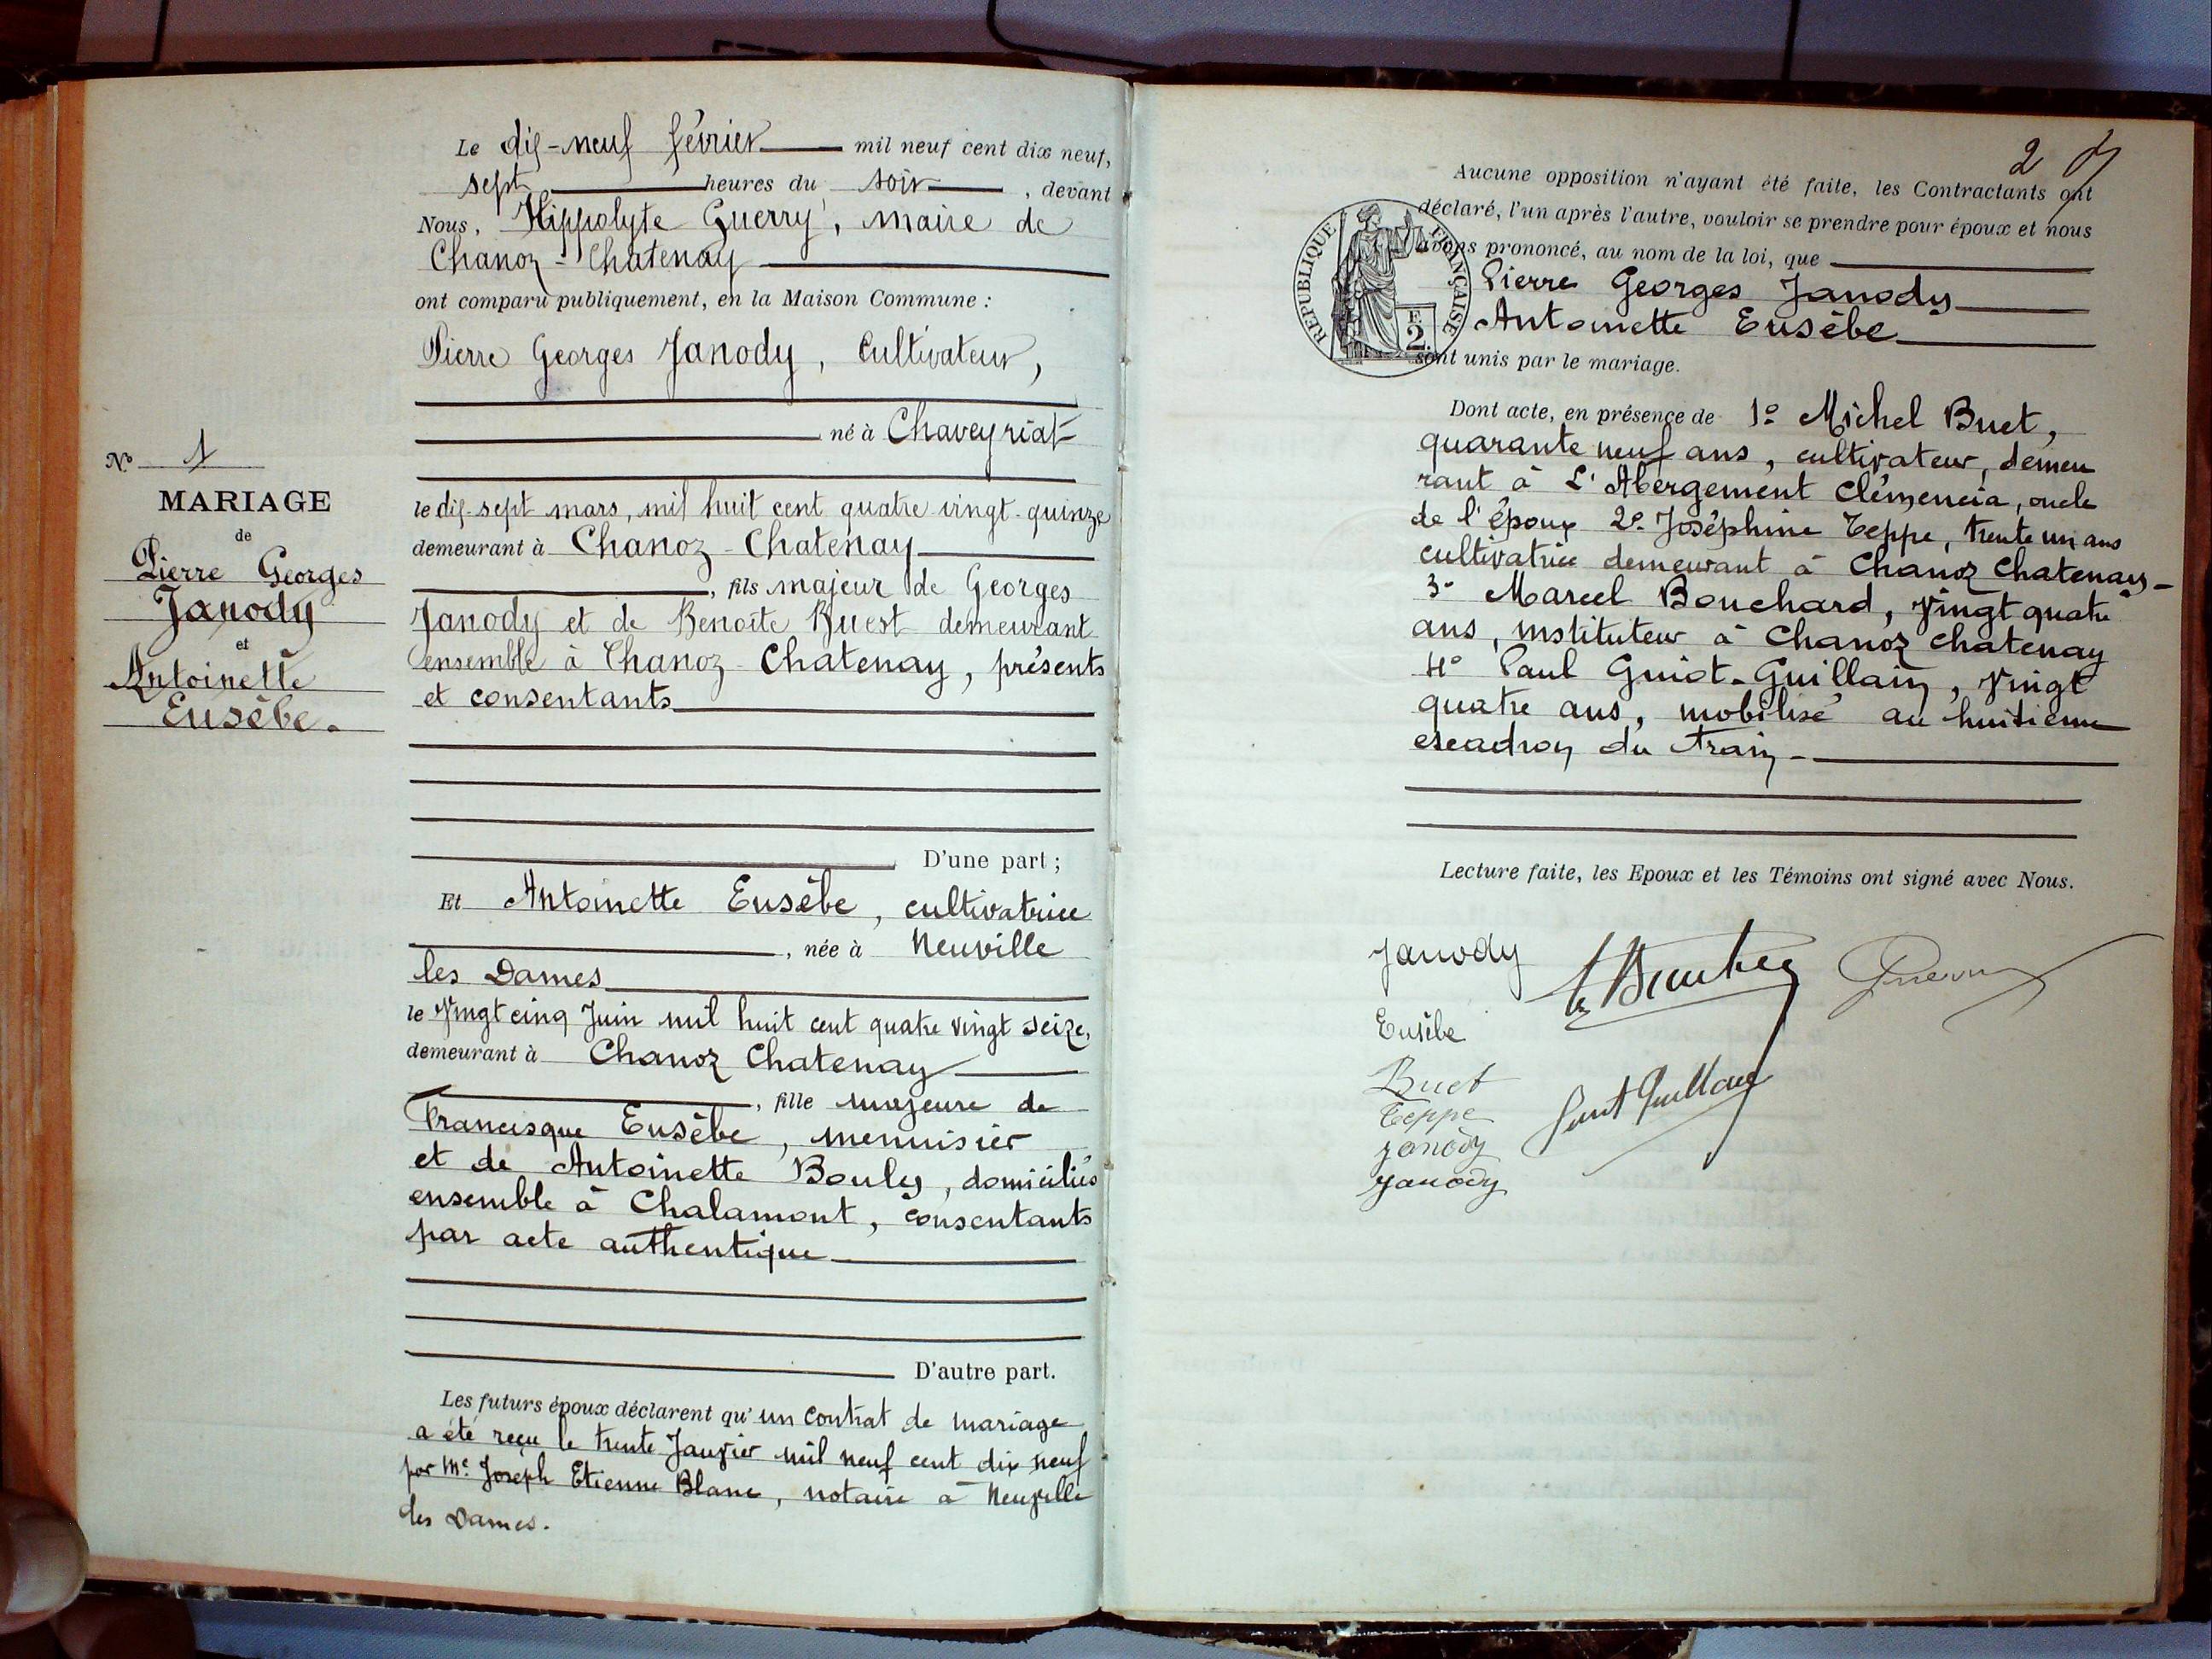 Le dix-neuf février mil neuf cent dix neuf,
sept heures du soir, devant
Nous, Hippolyte Guerry, maire de
Chanoz-Chatenay
ont comparu publiquement, en la Maison Commune :
Pierre Georges Janody, Cultivateur,
né à Chaveyriat
le dix-sept mars, mil huit cent quatre vingt-quinze
demeurant à Chanoz-Chatenay
, fils majeur de Georges
Janody et de Benoîte Buest demeurant
ensemble à Chanoz-Chatenay, présents
et consentants
D'une part ;
Et Antoinette Eusèbe, cultivatrice
, née à Neuville
les Dames
le Vingt cinq Juin mil huit cent quatre vingt seize,
demeurant à Chanoz Chatenay
, fille majeure de
Francisque Eusèbe, menuisier
et de Antoinette Bouley, domiciliés
ensemble à Chalamont, consentants
par acte authentique
D'autre part.
Les futurs époux déclarent qu'un contrat de mariage
a été reçu le trente Janvier mil neuf cent dix neuf
par Me Joseph Etienne Blanc, notaire à Neuville
les Dames.
No 1
MARIAGE
de
Pierre Georges
Janody
et
Antoinette
Eusèbe.
2
Aucune opposition n'ayant été faite, les Contractants ont
déclaré, l'un après l'autre, vouloir se prendre pour époux et nous
avons prononcé, au nom de la loi, que
Pierre Georges Janody
Antoinette Eusèbe
sont unis par le mariage.
RÉPUBLIQUE FRANÇAISE
F
2
Dont acte, en présence de 1o Michel Buet,
quarante neuf ans, cultivateur, demeu
rant à L'Abergement Clémencia, oncle
de l'époux 2o Joséphine Teppe, trente un ans
cultivatrice demeurant à Chanoz Chatenay-
3o Marcel Bouchard, Vingt quatre
ans, instituteur à Chanoz Chatenay
4o Paul Guiot-Guillain, Vingt
quatre ans, mobilisé au huitième
escadron du train-
Lecture faite, les Epoux et les Témoins ont signé avec Nous.
Janody
Guerry
Eusèbe
Buet
Teppe
Janody
Janody